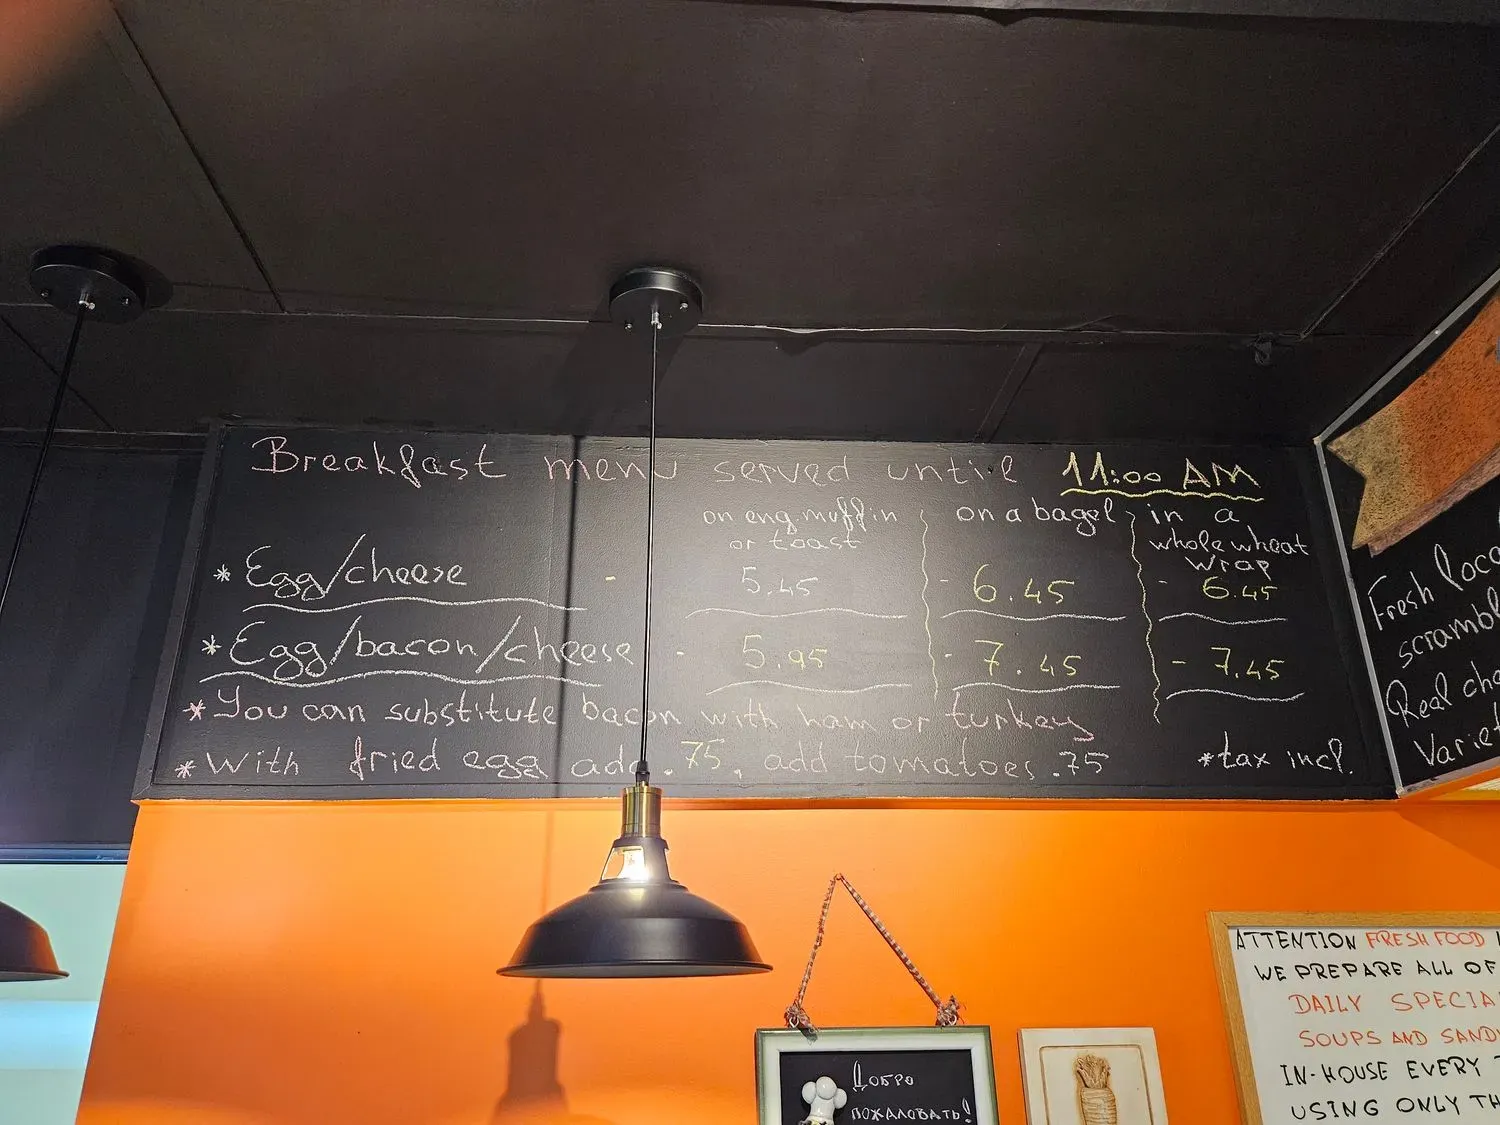 Breakfast menu served until 11:00 AM
on eng. muffin or toast
on a bagel
in a whole wheat wrap
* Egg/cheese - 5.45 - 6.45 - 6.45
* Egg/bacon/cheese - 5.95 - 7.45 - 7.45
* You can substitute bacon with ham or turkey
* With fried egg add .75, add tomatoes .75
*tax incl.
Fresh
Real
ATTENTION FRESH FOOD
WE PREPARE ALL OF
DAILY
SOUPS AND
IN-HOUSE EVERY
USING ONLY
Добро
пожаловать!